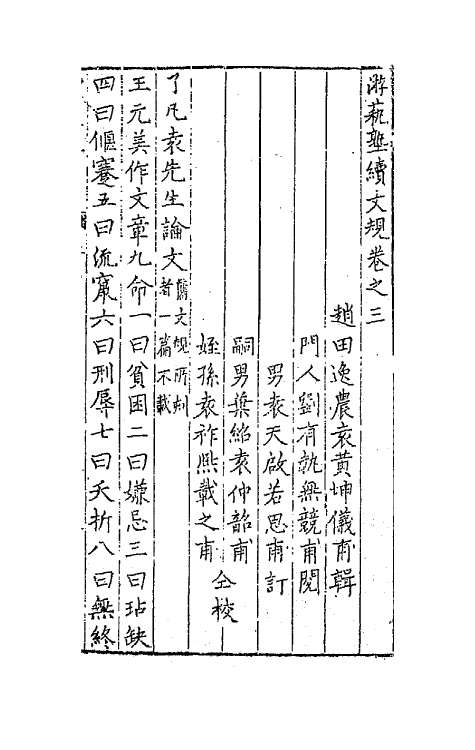 游藝塾續文規卷之三
趙田逸農袁黃坤儀甫輯
門人劉有執無競甫閱
男袁天啟若思甫訂
嗣男葉紹袁仲韶甫
姪孫袁祚熙載之甫 仝校
了凡袁先生論文舊文規所刻者一篇不載
王元美作文章九命一曰貧困二曰嫌忌三曰玷缺
四曰偃蹇五曰流竄六曰刑辱七曰夭折八曰無終